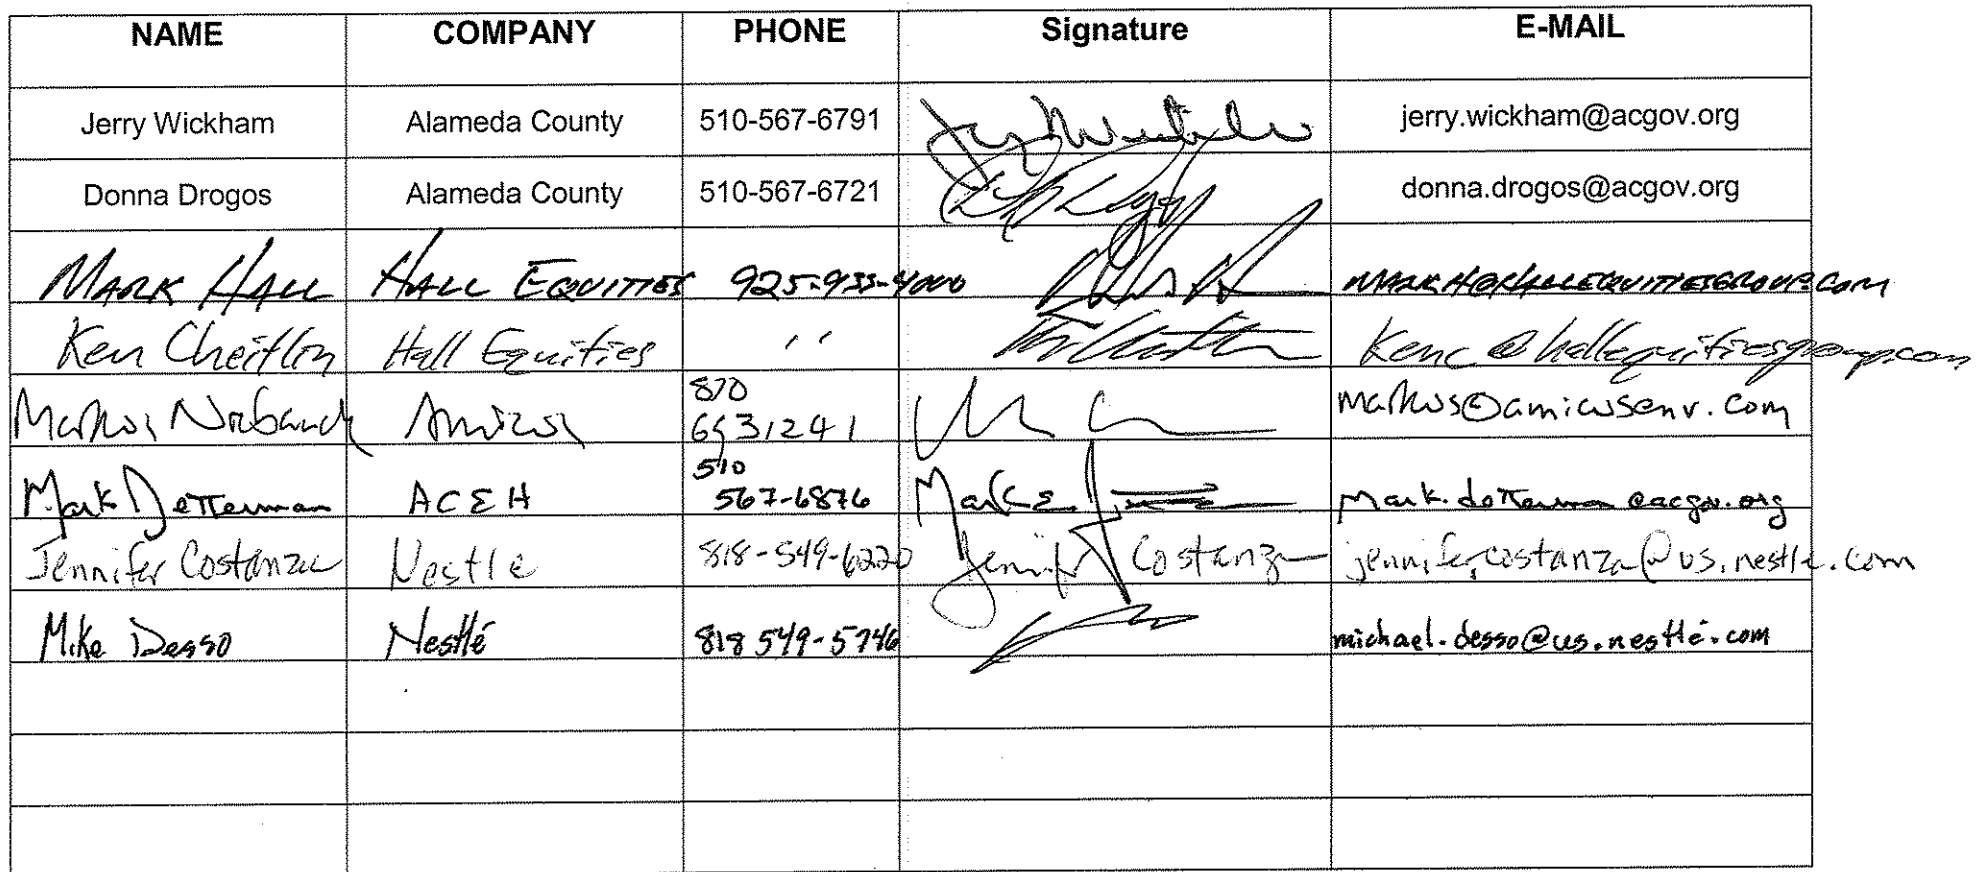 NAME COMPANY PHONE Signature E-MAIL
Jerry Wickham Alameda County 510-567-6791 jerry.wickham@acgov.org
Donna Drogos Alameda County 510-567-6721 donna.drogos@acgov.org
MARK HALL HALL EQUITIES 925-933-4000 MARKH@HALLEQUITIESGROUP.COM
Ken Cheitlin Hall Equities '' Kenc@hallequitiesgroup.com
Markus Niebanck Amicus 510 6931241 markus@amicusenv.com
Mark Detterman ACEH 510 567-6876 Mark E. mark.detterman@acgov.org
Jennifer Costanza Nestle 818-549-6220 Jennifer Costanza jennifer.costanza@us.nestle.com
Mike Desso Nestlé 818 549-5746 michael.desso@us.nestlé.com